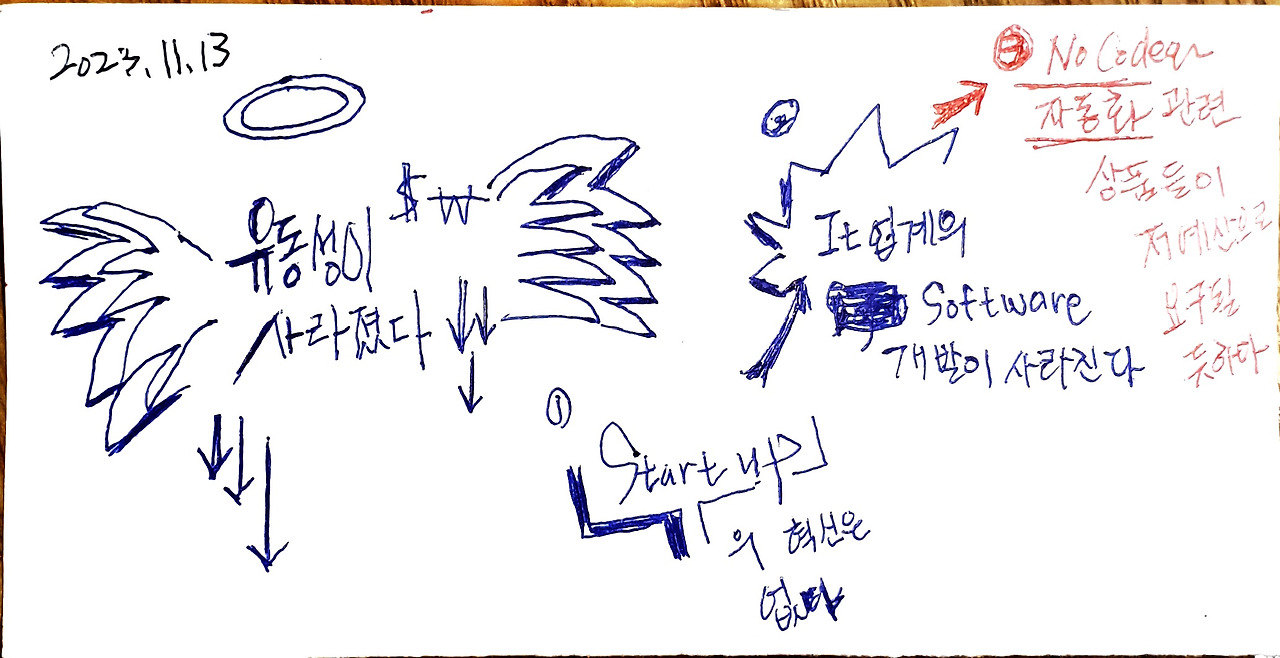 2023.11.13
$ ₩
유동성이
사라졌다
①
Startup
의 혁신은
없다
②
It 업계의
Software
개발이 사라진다
③ No Code와
자동화 관련
상품들이
저예산으로
요구될
듯하다